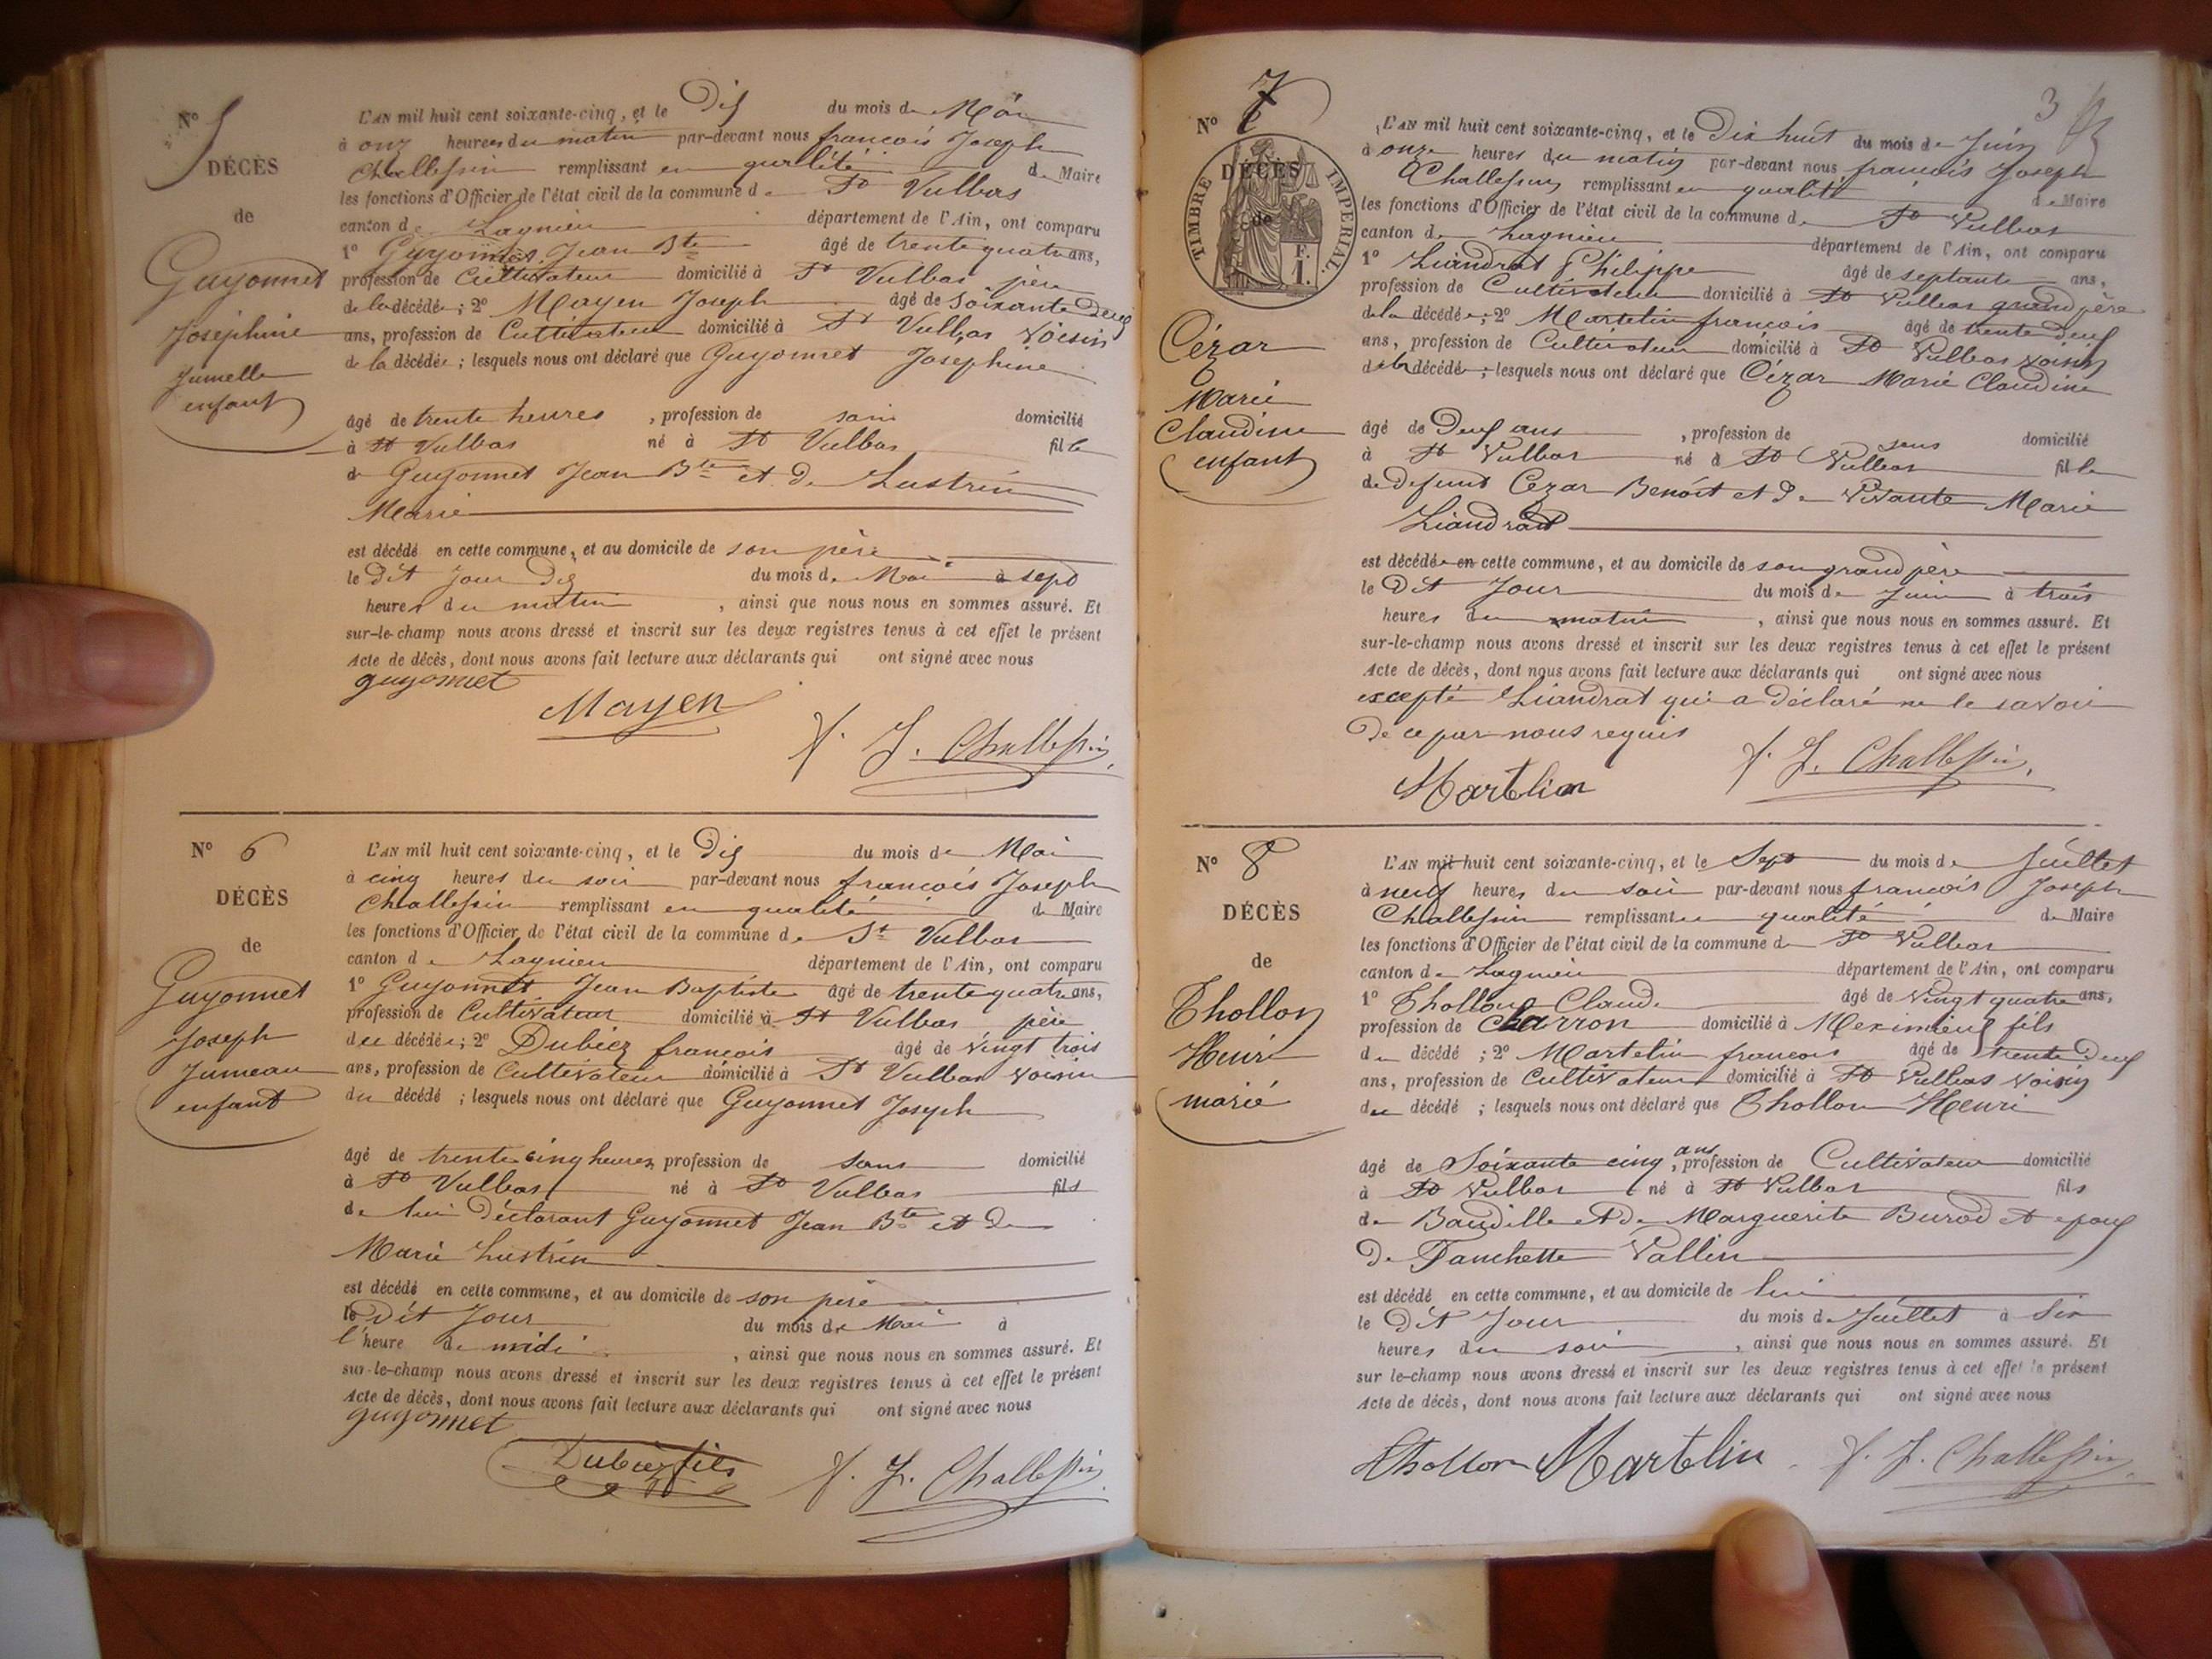 N° 5
DÉCÈS
de
Guyonnet
Joséphine
Jumelle
enfant
L'AN mil huit cent soixante-cinq, et le Dix du mois de Mai
à onz heures du matin par-devant nous françois Joseph
Challessin remplissant en quallité de Maire
les fonctions d'Officier de l'état civil de la commune de St Vulbas
canton de Lagnieu département de l'Ain, ont comparu
1° Guyonnet Jean Bte âgé de trente quatre ans,
profession de Cultivateur domicilié à St Vulbas père
de la décédée; 2° Mayen Joseph âgé de soixante deux
ans, profession de Cultivateur domicilié à St Vulbas voisin
de la décédée; lesquels nous ont déclaré que Guyonnet Josephine
âgé de trente heures, profession de domicilié
à St Vulbas né à St Vulbas fille
de Guyonnet Jean Bte et De Lustrin
Marie
est décédé en cette commune, et au domicile de son père
le Dit jour Dix du mois de Mai à sept
heures du matin, ainsi que nous nous en sommes assuré. Et
sur-le-champ nous avons dressé et inscrit sur les deux registres tenus à cet effet le présent
Acte de décès, dont nous avons fait lecture aux déclarants qui ont signé avec nous
guyonnet
Mayen
f. J. Challessin
N° 6
DÉCÈS
de
Guyonnet
Joseph
Jumeau
enfant
L'AN mil huit cent soixante-cinq, et le Dix du mois de Mai
à cinq heures du soir par-devant nous françois Joseph
Challessin remplissant en qualité de Maire
les fonctions d'Officier de l'état civil de la commune de St Vulbas
canton de Lagnieu département de l'Ain, ont comparu
1° Guyonnet Jean Baptiste âgé de trente quatre ans,
profession de Cultivateur domicilié à St Vulbas père
du décédé; 2° Dubiez françois âgé de vingt trois
ans, profession de Cultivateur domicilié à St Vulbas voisin
du décédé; lesquels nous ont déclaré que Guyonnet Joseph
âgé de trente cinq heures profession de sans domicilié
à St Vulbas né à St Vulbas fils
de lui déclarant Guyonnet Jean Bte et De
Marie Lustrin
est décédé en cette commune, et au domicile de son père
le Dit Jour du mois de Mai à
l'heure de midi, ainsi que nous nous en sommes assuré. Et
sur-le-champ nous avons dressé et inscrit sur les deux registres tenus à cet effet le présent
Acte de décès, dont nous avons fait lecture aux déclarants qui ont signé avec nous
guyonnet
Dubiez fils
f. J. Challessin
3
N° 7
DÉCÈS
de
TIMBRE IMPÉRIAL
F.
1.
Cézar
Marie
Claudine
enfant
L'AN mil huit cent soixante-cinq, et le Dix huit du mois de Juin
à onze heures du matin par-devant nous françois Joseph
Challessin remplissant en qualité de Maire
les fonctions d'Officier de l'état civil de la commune de St Vulbas
canton de Lagnieu département de l'Ain, ont comparu
1° Liandrat Philippe âgé de septante ans,
profession de Cultivateur domicilié à St Vulbas grand père
de la décédée; 2° Martelin françois âgé de trente deux
ans, profession de Cultivateur domicilié à St Vulbas voisin
de la décédé; lesquels nous ont déclaré que Cézar Marie Claudine
âgé de Deux ans, profession de sans domicilié
à St Vulbas né à St Vulbas fille
de defunt Cezar Benoit et De vivante Marie
Liandrat
est décédée en cette commune, et au domicile de son grand père
le Dit Jour du mois de Juin à trois
heures du matin, ainsi que nous nous en sommes assuré. Et
sur-le-champ nous avons dressé et inscrit sur les deux registres tenus à cet effet le présent
Acte de décès, dont nous avons fait lecture aux déclarants qui ont signé avec nous
excepté Liandrat qui a déclaré ne le savoir
De ce par nous requis
Martelin
f. J. Challessin
N° 8
DÉCÈS
de
Thollon
Henri
marié
L'AN mil huit cent soixante-cinq, et le Sept du mois de Juillet
à neuf heures du soir par-devant nous françois Joseph
Challessin remplissant en qualité de Maire
les fonctions d'Officier de l'état civil de la commune de St Vulbas
canton de Lagnieu département de l'Ain, ont comparu
1° Thollon Claude âgé de vingt quatre ans,
profession de Charron domicilié à Meximieux fils
du décédé; 2° Martelin françois âgé de trente deux
ans, profession de Cultivateur domicilié à St Vulbas voisin
du décédé; lesquels nous ont déclaré que Thollon Henri
âgé de Soixante cinq ans, profession de Cultivateur domicilié
à St Vulbas né à St Vulbas fils
de Baudille et de Marguerite Burod et epoux
De Fanchette Vallin
est décédé en cette commune, et au domicile de lui
le Dit Jour du mois de Juillet à Six
heures du soir, ainsi que nous nous en sommes assuré. Et
sur le-champ nous avons dressé et inscrit sur les deux registres tenus à cet effet le présent
Acte de décès, dont nous avons fait lecture aux déclarants qui ont signé avec nous
Thollon Martelin f. J. Challessin